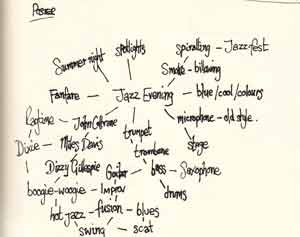 Poster
Summer night spotlights spiralling - Jazz-fest
Smoke - billowing
Fanfare - Jazz Evening blue/cool/colours
Ragtime - John Coltrane trumpet microphone - old style.
Dixie - Miles Davis trombone stage
Dizzy Gillespie Guitar bass - Saxophone
boogie-woogie - Improv drums
hot jazz - fusion - blues
swing scat